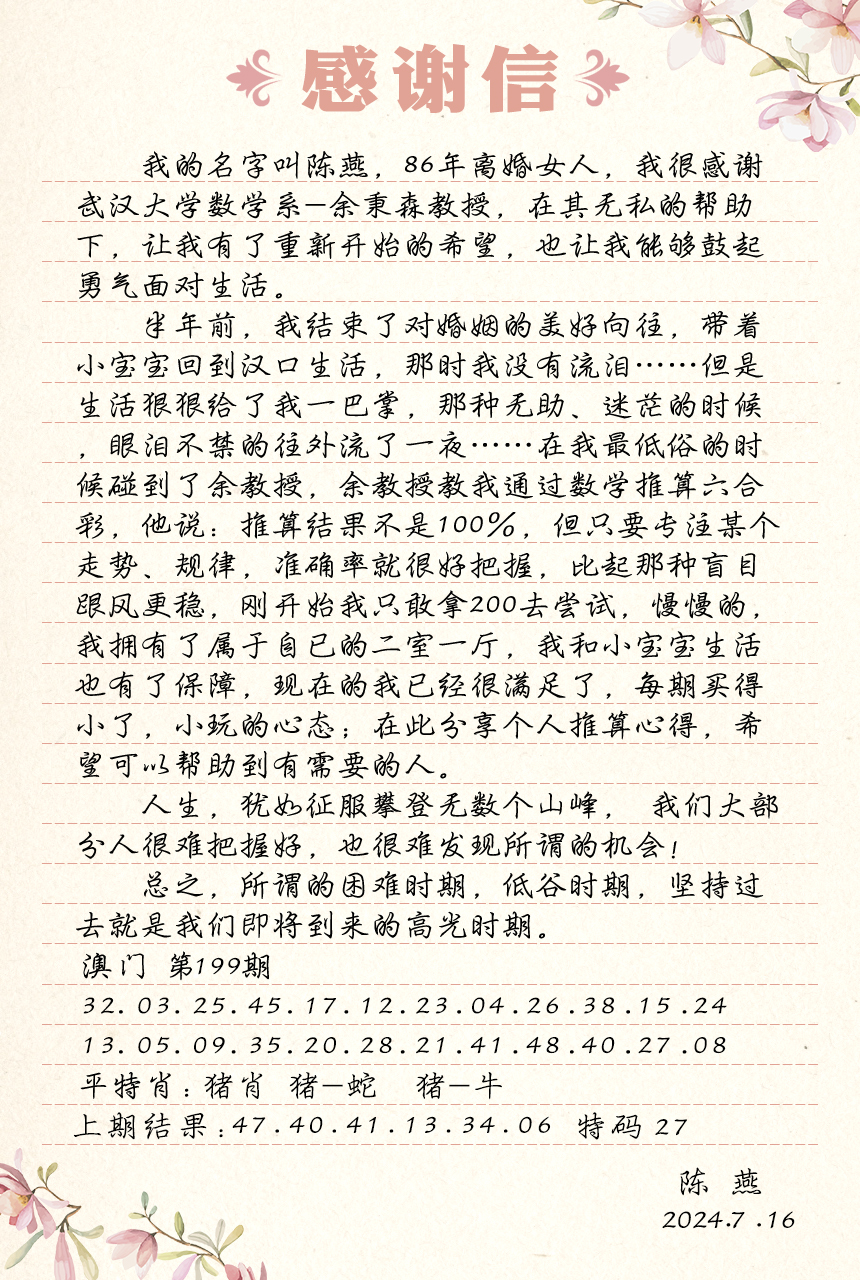 感谢信
我的名字叫陈燕，86年离婚女人，我很感谢
武汉大学数学系—余秉森教授，在其无私的帮助
下，让我有了重新开始的希望，也让我能够鼓起
勇气面对生活。
半年前，我结束了对婚姻的美好向往，带着
小宝宝回到汉口生活，那时我没有流泪……但是
生活狠狠给了我一巴掌，那种无助、迷茫的时候
，眼泪不禁的往外流了一夜……在我最低俗的时
候碰到了余教授，余教授教我通过数学推算六合
彩，他说：推算结果不是100%，但只要专注某个
走势、规律，准确率就很好把握，比起那种盲目
跟风更稳，刚开始我只敢拿200去尝试，慢慢的，
我拥有了属于自已的二室一厅，我和小宝宝生活
也有了保障，现在的我已经很满足了，每期买得
小了，小玩的心态；在此分享个人推算心得，希
望可以帮助到有需要的人。
人生，犹如征服攀登无数个山峰， 我们大部
分人很难把握好，也很难发现所谓的机会！
总之，所谓的困难时期，低谷时期，坚持过
去就是我们即将到来的高光时期。
澳门 第199期
32.03.25.45.17.12.23.04.26.38.15.24
13.05.09.35.20.28.21.41.48.40.27.08
平特肖：猪肖 猪—蛇 猪—牛
上期结果：47.40.41.13.34.06 特码 27
陈 燕
2024.7.16